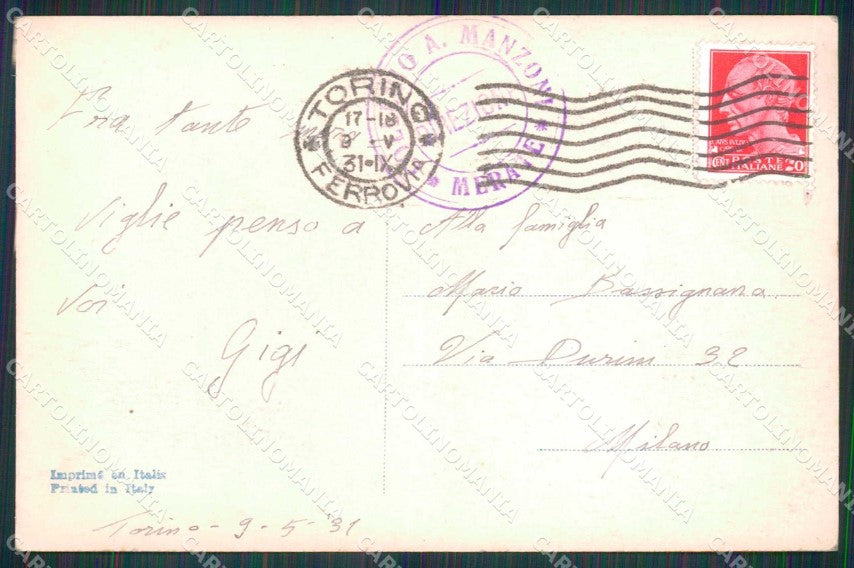 TORINO
17-18
9-V
31-IX
FERROVIA
A. MANZONI
* MERATE *
POSTE
ITALIANE
CENT 20
Fra tante
viglie penso a
voi
Gigi
Alla famiglia
Mario Bassignana
Via Durini 32
Milano
Imprimé en Italie
Printed in Italy
Torino - 9-5-31
CARTOLINOMANIA